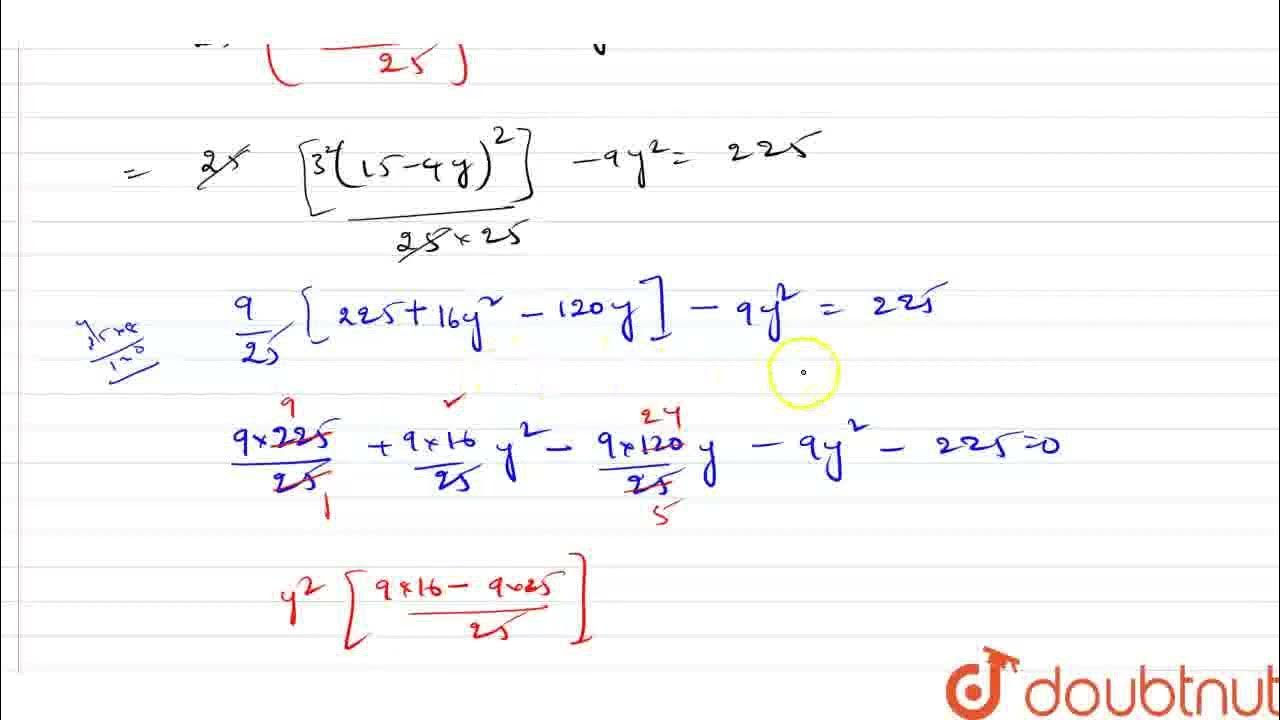 25
= 25 [3²(15-4y)²] / 25×25 - 9y² = 225
9/25 [225 + 16y² - 120y] - 9y² = 225
9 24
9×225/25 + 9×16/25 y² - 9×120/25 y - 9y² - 225=0
1 5
y² [9×16 - 9×25 / 25]
doubtnut